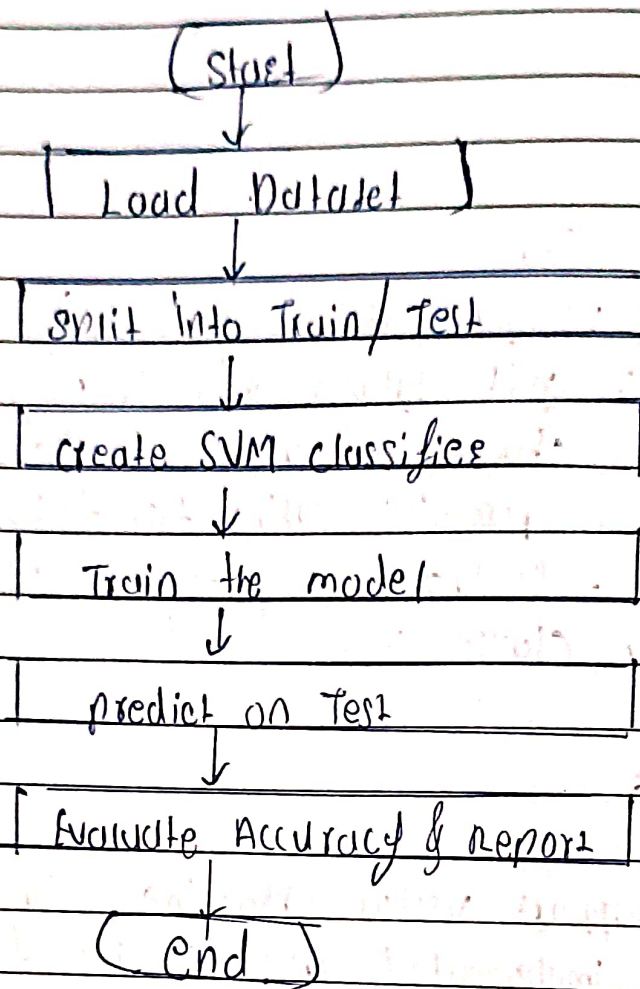 Start
Load Dataset
Split into Train/Test
create SVM classifier
Train the model
predict on Test
Evaluate Accuracy & Report
end